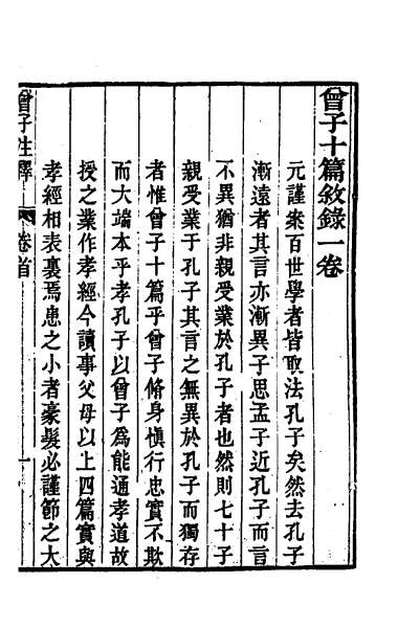 曾子十篇敘錄一卷
元謹案百世學者皆取法孔子矣然去孔子
漸遠者其言亦漸異子思孟子近孔子而言
不異猶非親受業於孔子者也然則七十子
親受業于孔子其言之無異於孔子而獨存
者惟曾子十篇乎曾子脩身愼行忠實不欺
而大端本乎孝孔子以曾子爲能通孝道故
授之業作孝經今讀事父母以上四篇實與
孝經相表裏焉患之小者豪髮必謹節之大
曾子注釋 卷首 一